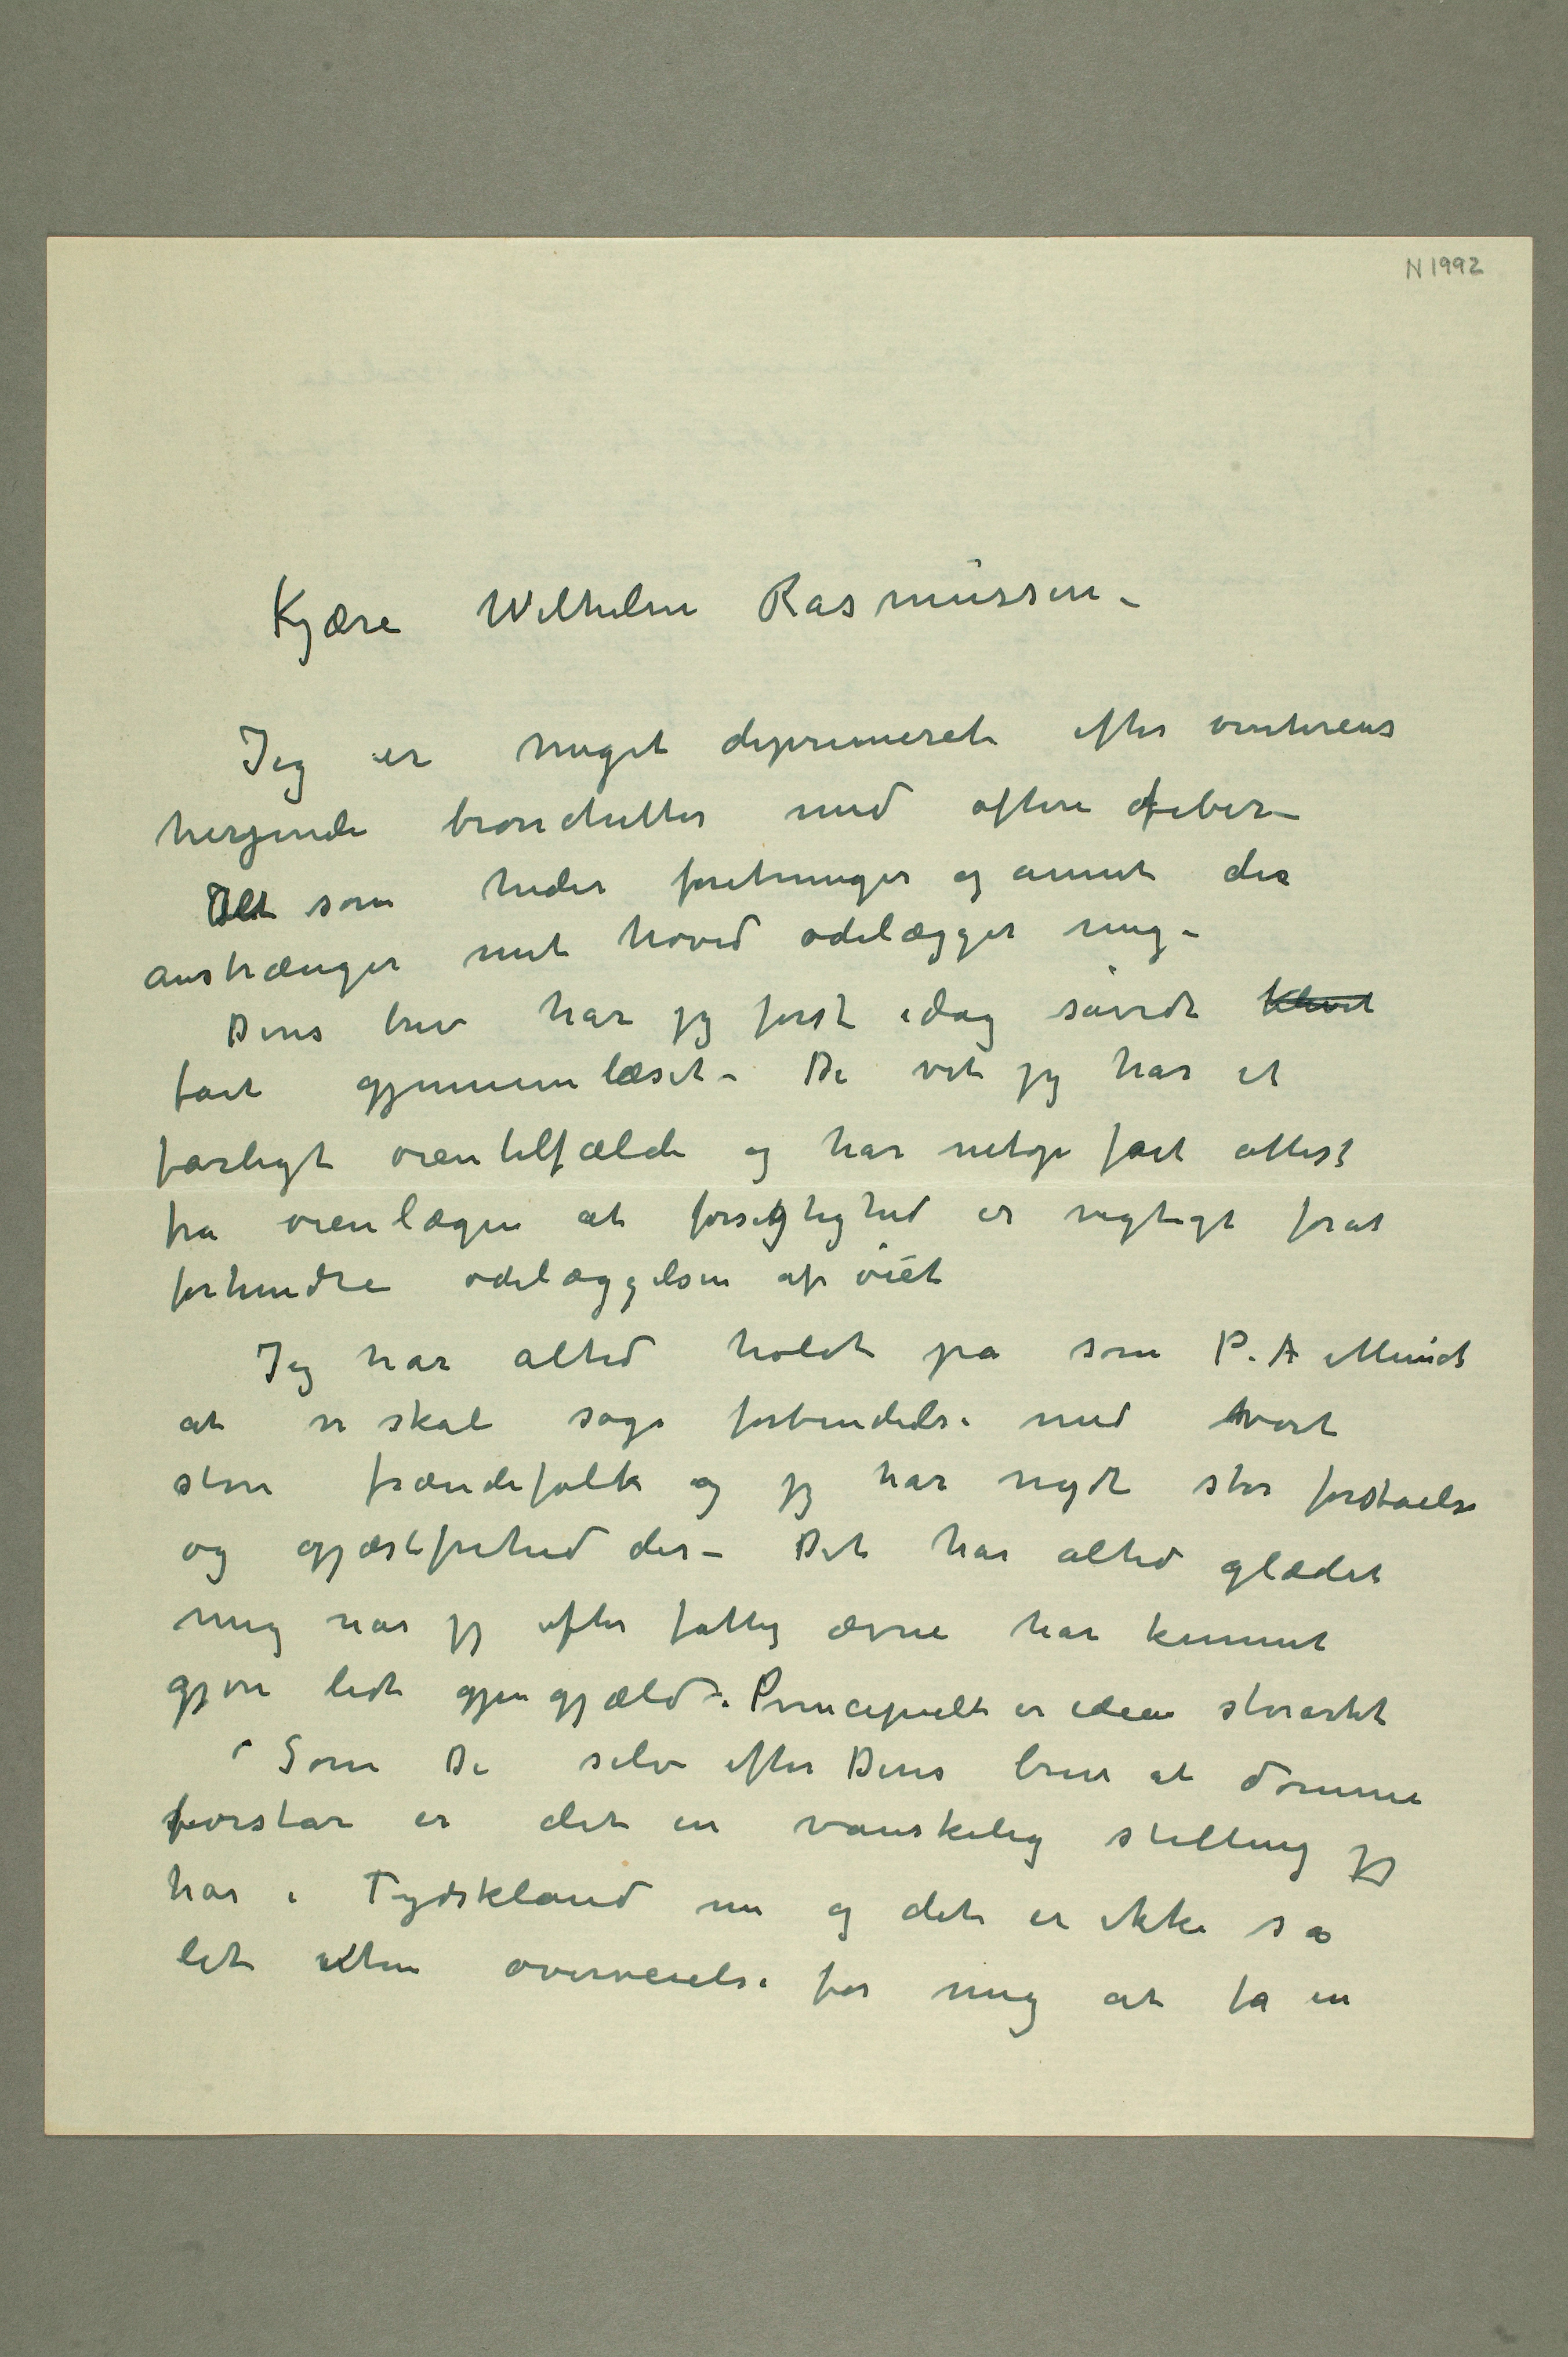 N 1992
Kjære Wilhelm Rasmussen –
Jeg er meget deprimeret efter vinterens
herjende bronchitter med oftere feber –
Alt som heder foretninger og annet der
anstrænger mit hoved odelægger mig –
Deres brev har jeg først idag såvidt
fået gjennemlæset – De vet jeg har et
farligt øientilfælde og har netop fåt attest
fra øienlægen at forsigtighed er vigtigt forat
forhindre odelæggelsen af øiet
Jeg har altid holdt på som P. A Munch
at vi skal søge forbindelse med vort
store frændefolk og jeg har nydt stor forståelse
og gjæstfrihed der – Det har altid glædet
mig når jeg efter fattig ævne har kunnet
gjøre lidt gjengjæld – Principielt er ideen storartet
Som De selv efter Deres brev at dømme
forstår er det en vanskelig stilling jeg
har i Tydskland nu og det er ikke så
let uten overveielse for mig at ta en